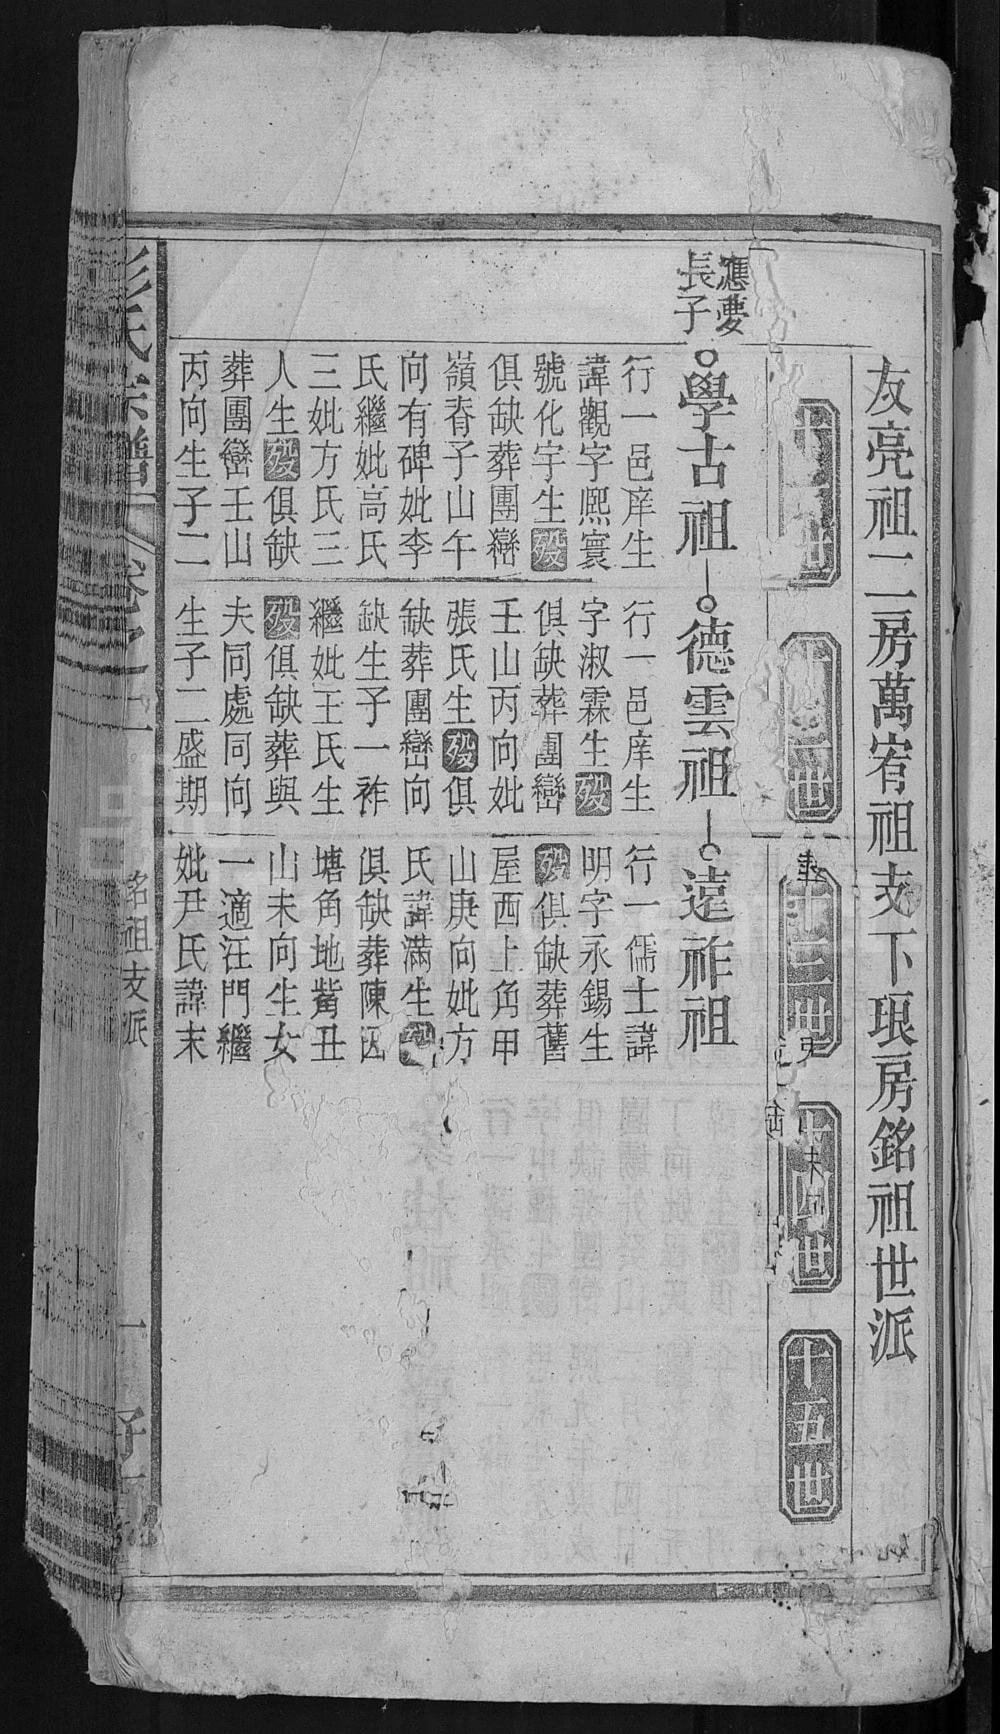 友亮祖二房萬宥祖支下琅房銘祖世派
十一世
十二世
十三世
十四世
十五世
應夢
長子
學古祖
行一邑庠生
諱觀字熙寰
號化宇生歿
俱缺葬團巒
嶺脊子山午
向有碑妣李
氏繼妣高氏
三妣方氏三
人生歿俱缺
葬團巒壬山
丙向生子二
德雲祖
行一邑庠生
字淑霖生歿
俱缺葬團巒
壬山丙向妣
張氏生歿俱
缺葬團巒向
缺生子一祚
繼妣王氏生
歿俱缺葬與
夫同處同向
生子二盛期
遠祚祖
行一儒士諱
明字永錫生
歿俱缺葬舊
屋西上角甲
山庚向妣方
氏諱滿生歿
俱缺葬陳凶
塘角地觜丑
山未向生女
一適汪門繼
妣尹氏諱末
彭氏宗譜
卷之
銘祖支派
一